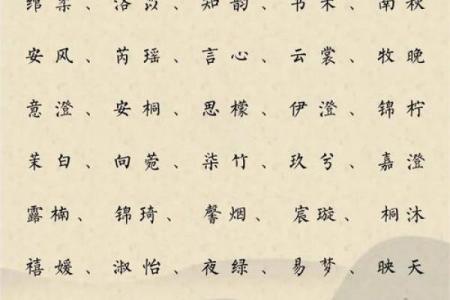 绾柔、洛以、知韵、书禾、南秋
安风、芮瑶、言心、云裳、牧晚
意澄、安桐、思檬、伊澄、锦柠
茉白、向菀、柒竹、玖兮、嘉澄
露楠、锦琦、馨烟、宸璇、桐沐
禧媛、淑怡、夜绿、易梦、映天